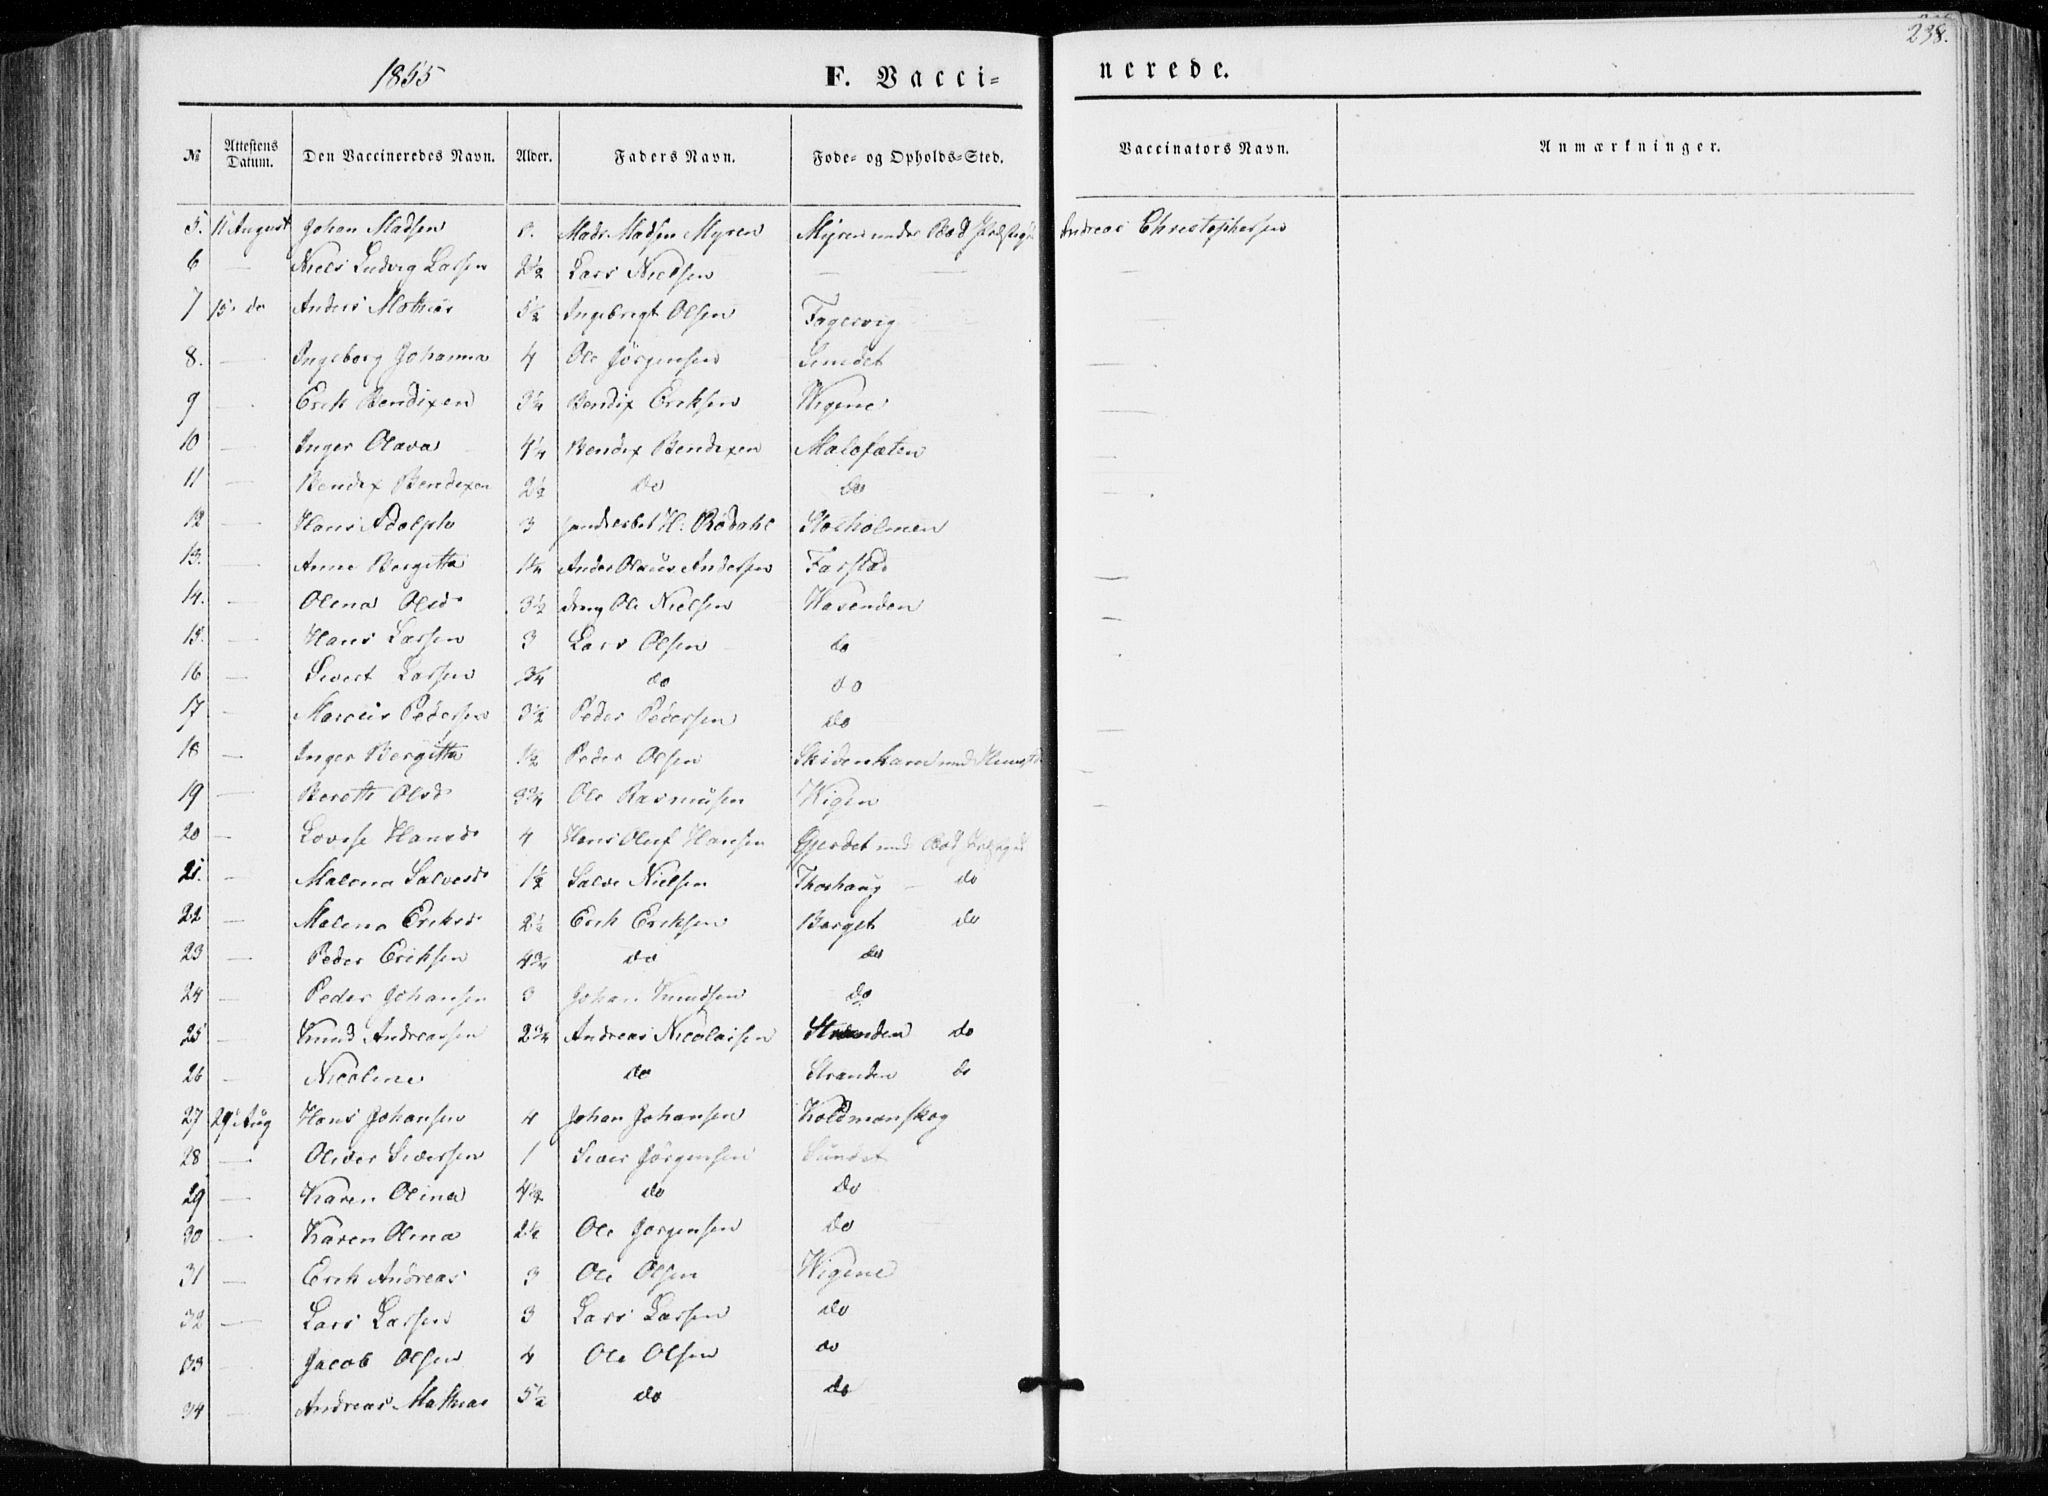 238.
1855
F. Vaccinerede.
№ Attestens Datum. Den Vaccineredes Navn. Alder. Faders Navn. Føde- og Opholds-Sted. Vaccinators Navn. Anmærkninger.
5. 11 August Johan Madsen Mads Madsen Myren Myren under Bod Andreas Christophersen
6 — Niels Ludvig Larsen 2½ Lars Nielsen —
7 15 do Anders Mathias 5½ Ingebrigt Olsen Fagervig
8. — Ingeborg Johanna 4 Ole Jörgensen Sundet
9 — Erik Bendixen 3¼ Bendix Eriksen Wigene
10 — Inger Olava 4¼ Bendix Bendixen Malefæten
11 — Bendix Bendixen 2½ do do
12 — Hans Adolph 3 H. Rödahl Storholmen
13. — Anne Bergitta 1¾ Anders Olaus Andersen Farstad
14. — Olena Olsd 3½ Ole Nielsen Havenden
15. — Hans Larsen 3 Lars Olsen do
16 — Sivert Larsen ¾ do do
17 — Marcus Pedersen 3½ Peder Pedersen do
18 — Inger Bergitta 1½ Peder Olsen Skidenhavn
19 — Bereth Olsd 3¾ Ole Rasmusen Wigen
20 — Lovise Hansd 4 Hans Oluf Hansen Gjerdet und Bod
21. — Malena Salvesd 1½ Salve Nielsen Thorhaug do
22 — Malena Eriksd 2½ Erik Eriksen Barget do
23 — Peder Eriksen 4¾ do do
24 — Peder Johansen 3 Johan Knudsen do
25 — Knud Andreassen 2¾ Andreas Nicolaisen Stranden do
26 — Nicoline do Stranden do
27 29 Aug Hans Johansen 4 Johan Johansen Koldmanskog
28 — Oliver Siversen 1 Siver Jörgensen Sundet
29 — Karen Olina 4½ do do
30 — Karen Olina 2½ Ole Jorgensen do
31 — Erik Andreas 3 Ole Olsen Wigene
32 — Lars Larsen 3 Lars Larsen do
33 — Jacob Olsen 4 Ole Olsen do
34 — Andreas Mathias 5½ do do